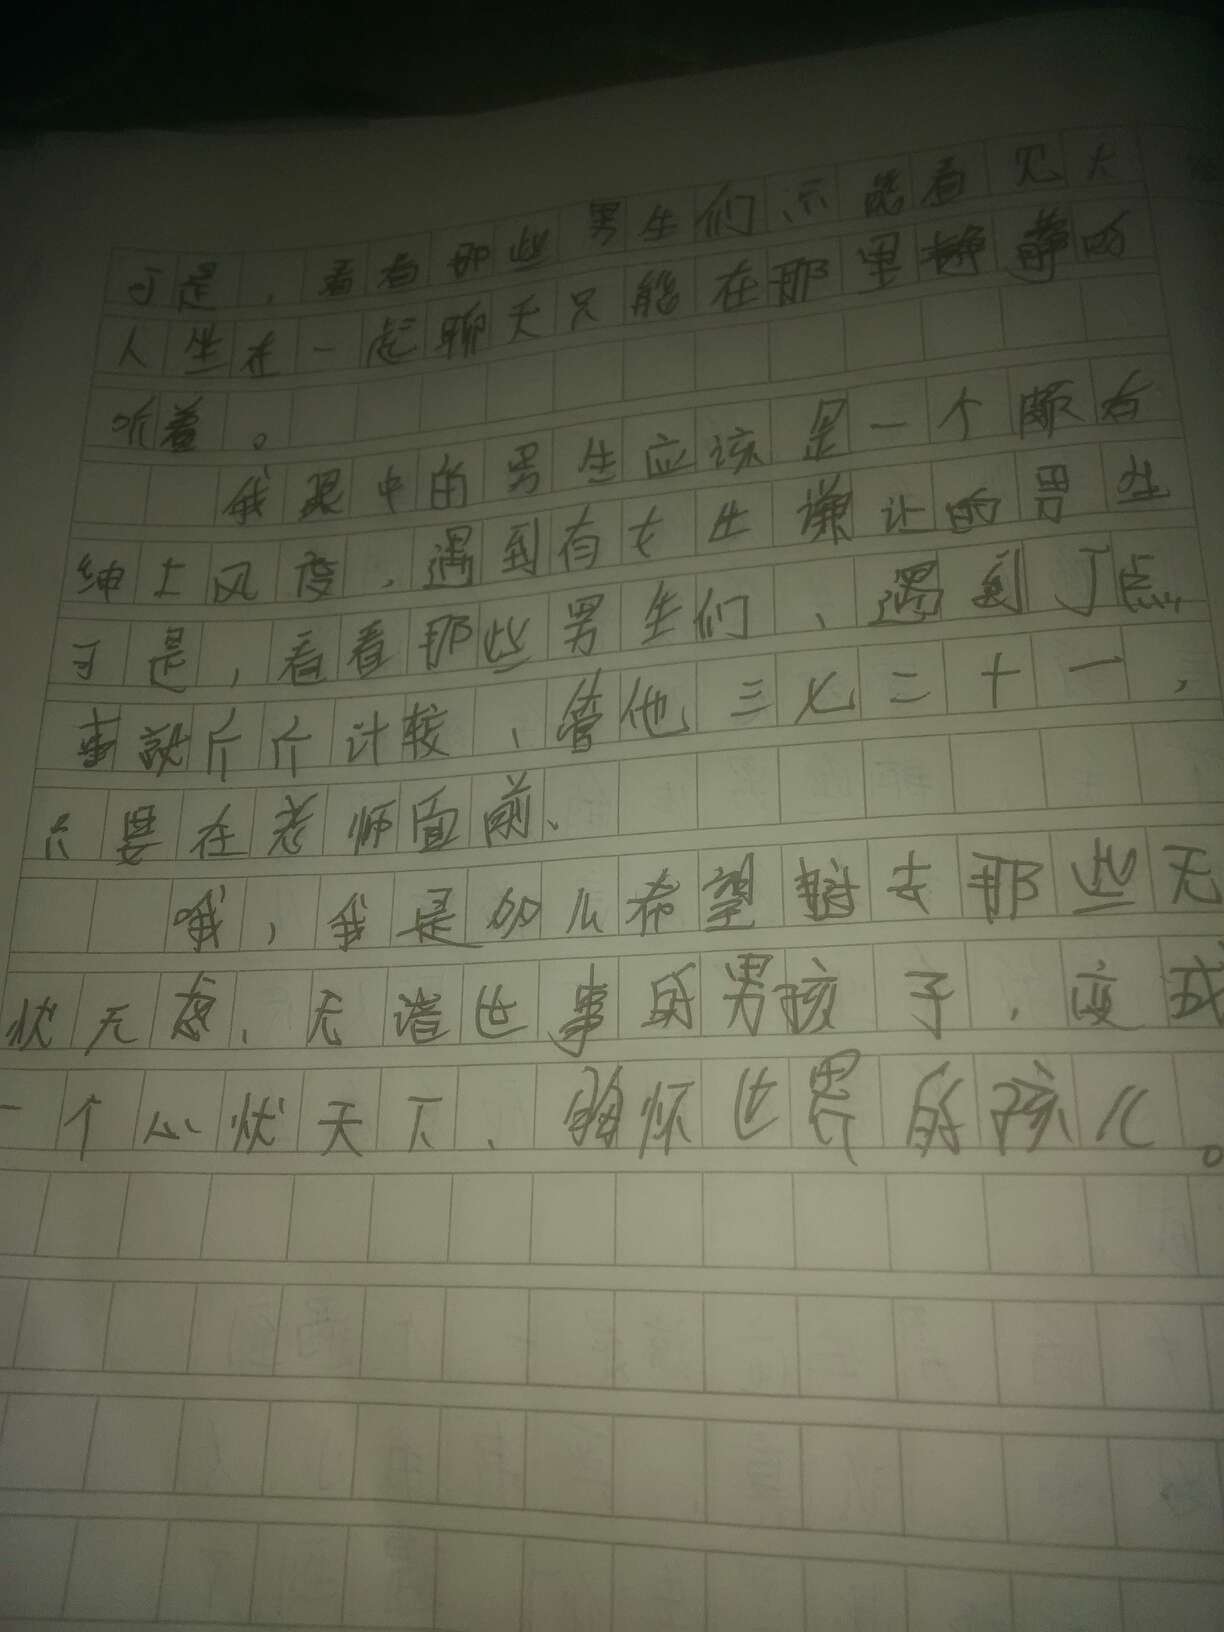 可是，看看那些男生们、只能看见大
人坐在一起聊天只能在那里静静的
听着。
我眼中的男生应该是一个颇有
绅士风度，遇到有女生谦让的男生
可是，看看那些男生们、遇到丁点
事就斤斤计较、管他三七二十一，
只要在老师面前、
哦，我是多么希望 去那些无
忧无虑、无谙世事的男孩子，变成
一个心忧天下、胸怀世界的孩儿。